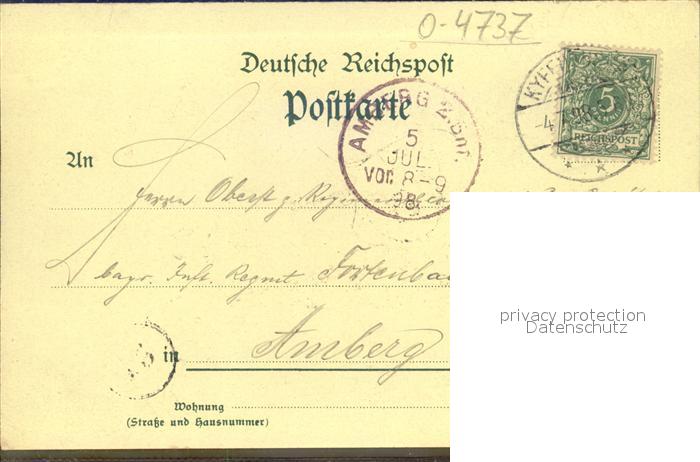 0-4737
Deutsche Reichspost
Postkarte
An
AMBERG 2.Bhf.
5
JUL.
VOR. 8-9
98.
KYFF
4
5
REICHSPOST
Herrn Oberst
bayr. Inft. Regmt. Fortenbac
in Amberg
Wohnung
(Straße und Hausnummer)
privacy protection
Datenschutz